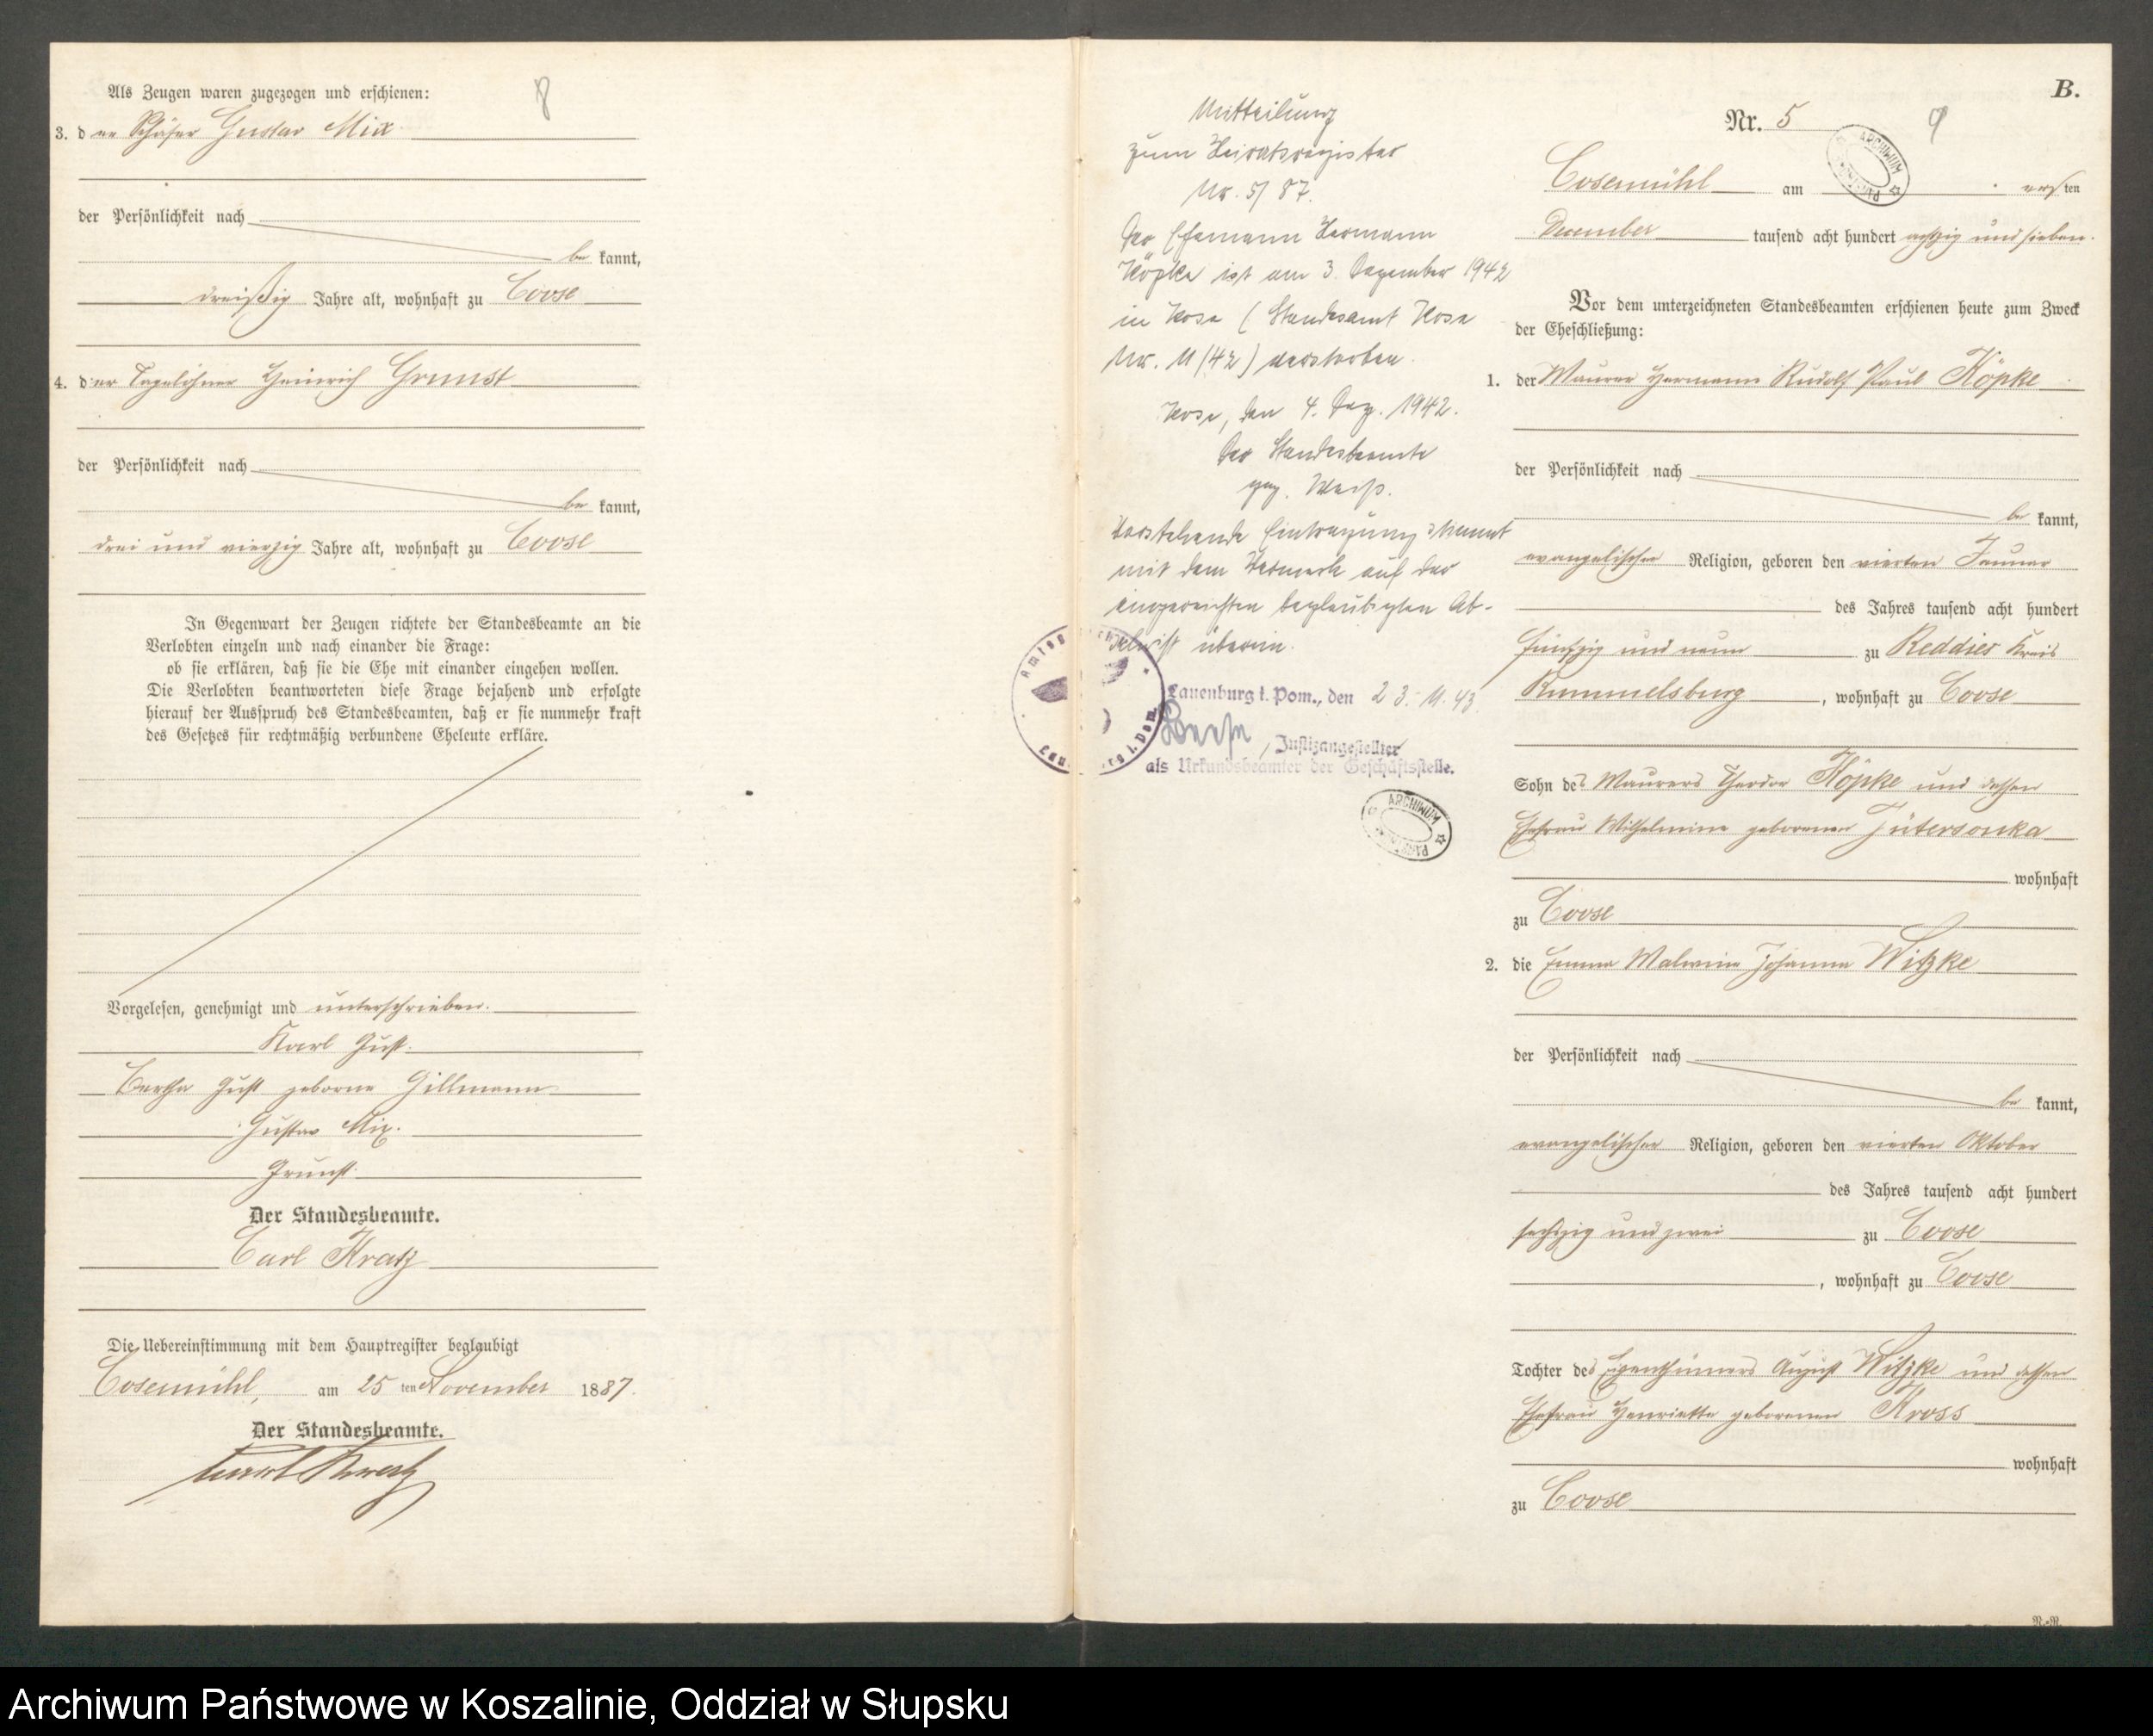 Als Zeugen waren zugezogen und erschienen:
8
3. der Schäfer Gustav Mix
der Persönlichkeit nach
be kannt,
dreißig Jahre alt, wohnhaft zu Coose
4. der Tagelöhner Heinrich Grunst
der Persönlichkeit nach
be kannt,
drei und vierzig Jahre alt, wohnhaft zu Coose
In Gegenwart der Zeugen richtete der Standesbeamte an die
Verlobten einzeln und nach einander die Frage:
ob sie erklären, daß sie die Ehe mit einander eingehen wollen.
Die Verlobten beantworteten diese Frage bejahend und erfolgte
hierauf der Ausspruch des Standesbeamten, daß er sie nunmehr kraft
des Gesetzes für rechtmäßig verbundene Eheleute erkläre.
Vorgelesen, genehmigt und unterschrieben.
Karl Gust.
Bertha Gust geborne Gillmann
Gustav Mix.
Grunst.
Der Standesbeamte.
Carl Kratz
Die Uebereinstimmung mit dem Hauptregister beglaubigt
Cosemühl, am 25 ten November 1887.
Der Standesbeamte.
Carl Kratz
Mitteilung
zum Heiratsregister
Nr. 5/87.
Der Ehemann Hermann
Köpke ist am 3. Dezember 1942
in Kose (Standesamt Kose
Nr. 11/42) verstorben.
Kose, den 4. Dez. 1942.
Der Standesbeamte
gez.
Vorstehende Eintragung stimmt
mit dem Vermerk auf der
eingereichten beglaubigten Ab-
schrift überein.
Lauenburg i. Pom., den 23. 11. 43.
, Justizangestellter
als Urkundsbeamter der Geschäftsstelle.
ARCHIWUM
B.
Nr. 5
9
ARCHIWUM
Cosemühl am ersten
December tausend acht hundert achtzig und sieben.
Vor dem unterzeichneten Standesbeamten erschienen heute zum Zweck
der Eheschließung:
1. der Maurer Hermann Rudolf Paul Köpke
der Persönlichkeit nach
be kannt,
evangelischer Religion, geboren den vierten Januar
des Jahres tausend acht hundert
fünfzig und neun zu Reddies Kreis
Rummelsburg, wohnhaft zu Coose
Sohn des Maurers Theodor Köpke und dessen
Ehefrau Wilhelmine geborenen Jütersonka
wohnhaft
zu Coose
2. die Emma Malwine Johanna Witzke
der Persönlichkeit nach
be kannt,
evangelischer Religion, geboren den vierten Oktober
des Jahres tausend acht hundert
sechszig und zwei zu Coose
, wohnhaft zu Coose
Tochter des Eigenthümers August Witzke und dessen
Ehefrau Henriette geborenen Kross
wohnhaft
zu Coose
N.-R.
Archiwum Państwowe w Koszalinie, Oddział w Słupsku